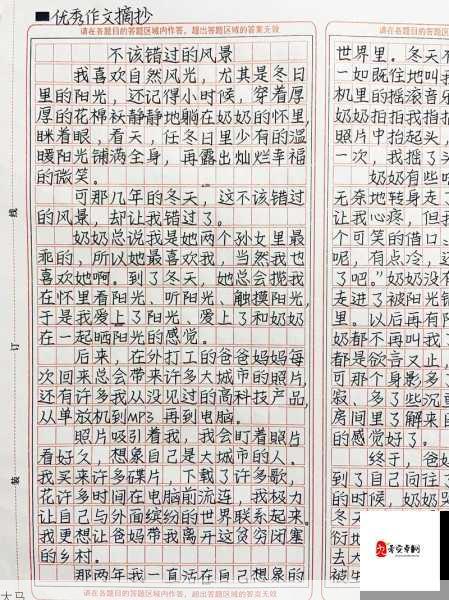 优秀作文摘抄
请在各题目的答题区域内作答，超出答题区域的答案无效
不该错过的风景
我喜欢自然风光，尤其是冬日
里的阳光，还记得小时候，穿着厚
厚的花棉袄静静地躺在奶奶的怀里，
眯着眼，看天，任冬日里少有的温
暖阳光铺满全身，再露出灿烂幸福
的微笑。
可那几年的冬天，这不该错过
的风景，却让我错过了。
奶奶总说我是她两个孙女里最
乖的，所以她最喜欢我，当然我也
喜欢她啊。到了冬天，她总会揽我
在怀里看阳光、听阳光、触摸阳光，
于是我爱上了阳光、爱上了和奶奶
在一起晒阳光的感觉。
后来，在外打工的爸爸妈妈每
次回来总会带来许多大城市的照片，
还有许多我从没见过的高科技产品，
从单放机到MP3再到电脑。
照片吸引着我，我会盯着照片
看好久，想象自己是大城市的人。
我买来许多碟片，下载了许多歌，
花许多时间在电脑前流连，我极力
让自己与外面缤纷的世界联系起来。
我更想让爸妈带我离开这贫穷闭塞
的乡村。
那两年我一直活在自己想象的
请在各题目的答题区域内作答，超出答题区域的答案无效
线
订
装
请在各题目的答题区域内
世界里。冬天
一如既往地叫我
机里的摇滚音乐
奶奶拍拍我指指
照片中抬起头，
一次，我摇了头
奶奶有些
无奈地转身走了
让我心疼，但我
个可笑的借口
呢，有点冷，这
了吧。”奶奶没有
走进了被阳光铺
里。以后再有阳
奶都不再叫我了
都是欲言又止，
可那个身影多了
寂、多了些沉重
房间里了解来自
的感觉好了。
终于，爸妈
到了自己向往了
的时候，奶奶哭
冬天
衍地
去大
被失